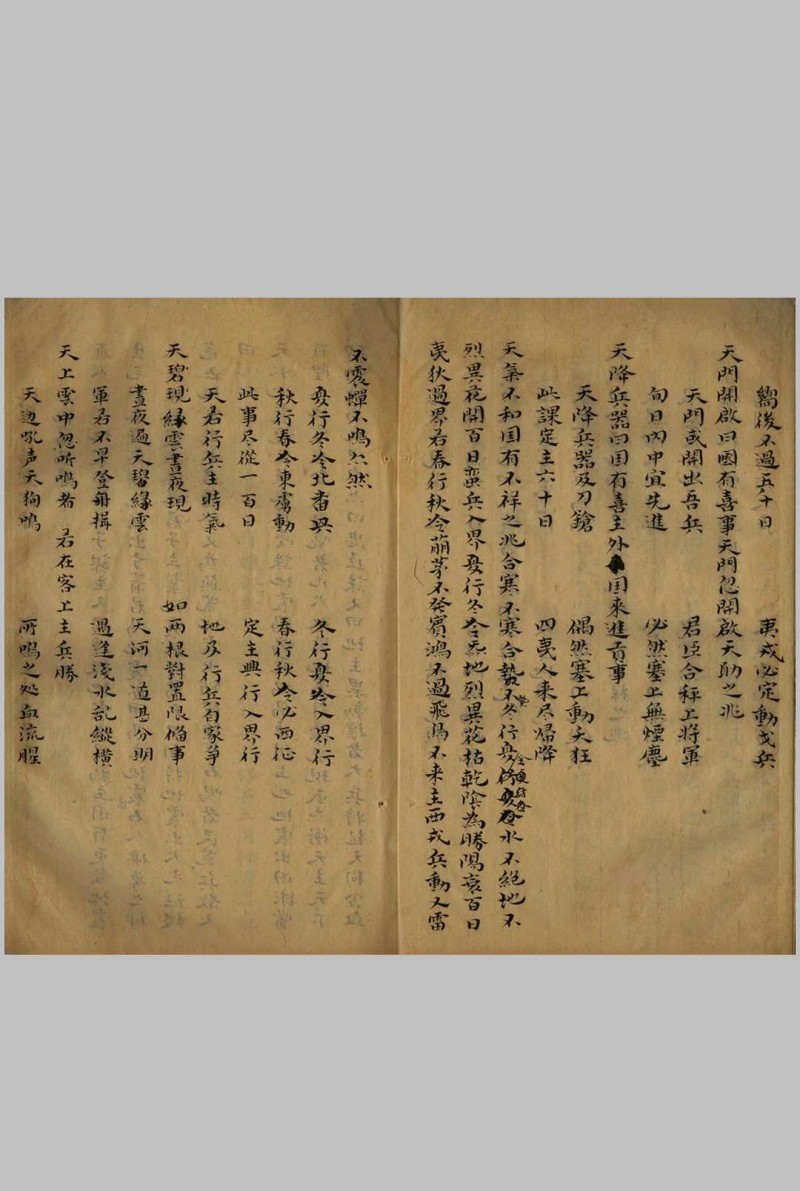 嚮後不過五十日 夷戎必定動戈兵
天門開啟曰國有喜事天門忽開啟天助之兆
天門或開出吾兵 君臣合秤上將軍
旬日內中宜先進 必然塞上無煙塵
天降兵器曰国有喜主外国來進貢事
天降兵器及刀鎗 偶然塞上動夫狂
此課定主六十日 四夷人来尽歸降
天氣不和国有不祥之兆合寒不寒合蟄不冬行夏令水不絕地不
烈異花開百日蛮兵入界夏行冬令天地烈異花枯乾陰為勝陽衰百日
夷狄過界若春行秋冷萠芽不發賓鴻不過飛鳥不来主西戎兵動人雷
不震蟬不鳴不然
夏行冬冷北畨興 冬行夏冷入界行
秋行春冷東虜動 春行秋冷必西征
此事尽從一百日 定主興行入界行
天若行兵主時氣 地及行兵百家爭
天碧現緣雲晝夜現 如兩根對置限偹事
晝夜過天碧緣雲 天河一道甚分明
軍若不早登舟楫 過逢淺水乱縱橫
天上雲中忽听鳴者 若在客上主兵勝
天边吼声天狗鳴 所鳴之処血流腥